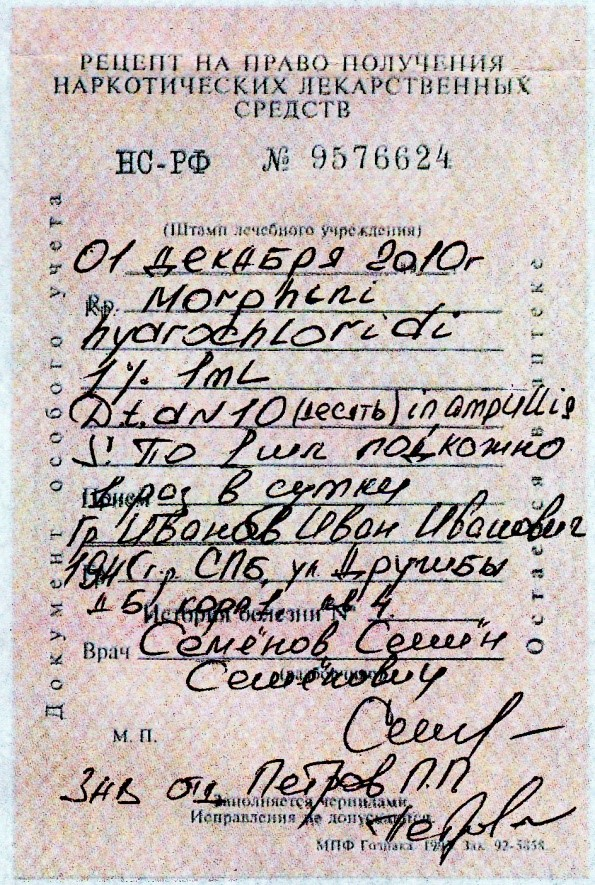 РЕЦЕПТ НА ПРАВО ПОЛУЧЕНИЯ
НАРКОТИЧЕСКИХ ЛЕКАРСТВЕННЫХ
СРЕДСТВ
НС-РФ № 9576624
(Штамп лечебного учреждения)
01 декабря 2010г
Rp. Morphini
hydrochloridi
1% 1ml
D.t.d N 10 (десять) in ampullis
S. По 1 мл подкожно
Прием 1 раз в сутки
Гр Иванов Иван Иванович
СПБ, ул Дружбы
История болезни №
Врач Семёнов Семён
Семёнович
М. П.
Зав отд Петров П.П
Заполняется чернилами.
Исправления не допускаются.
МПФ Гознака. Зак. 92-5858.
Документ особого учета
Остается в аптеке